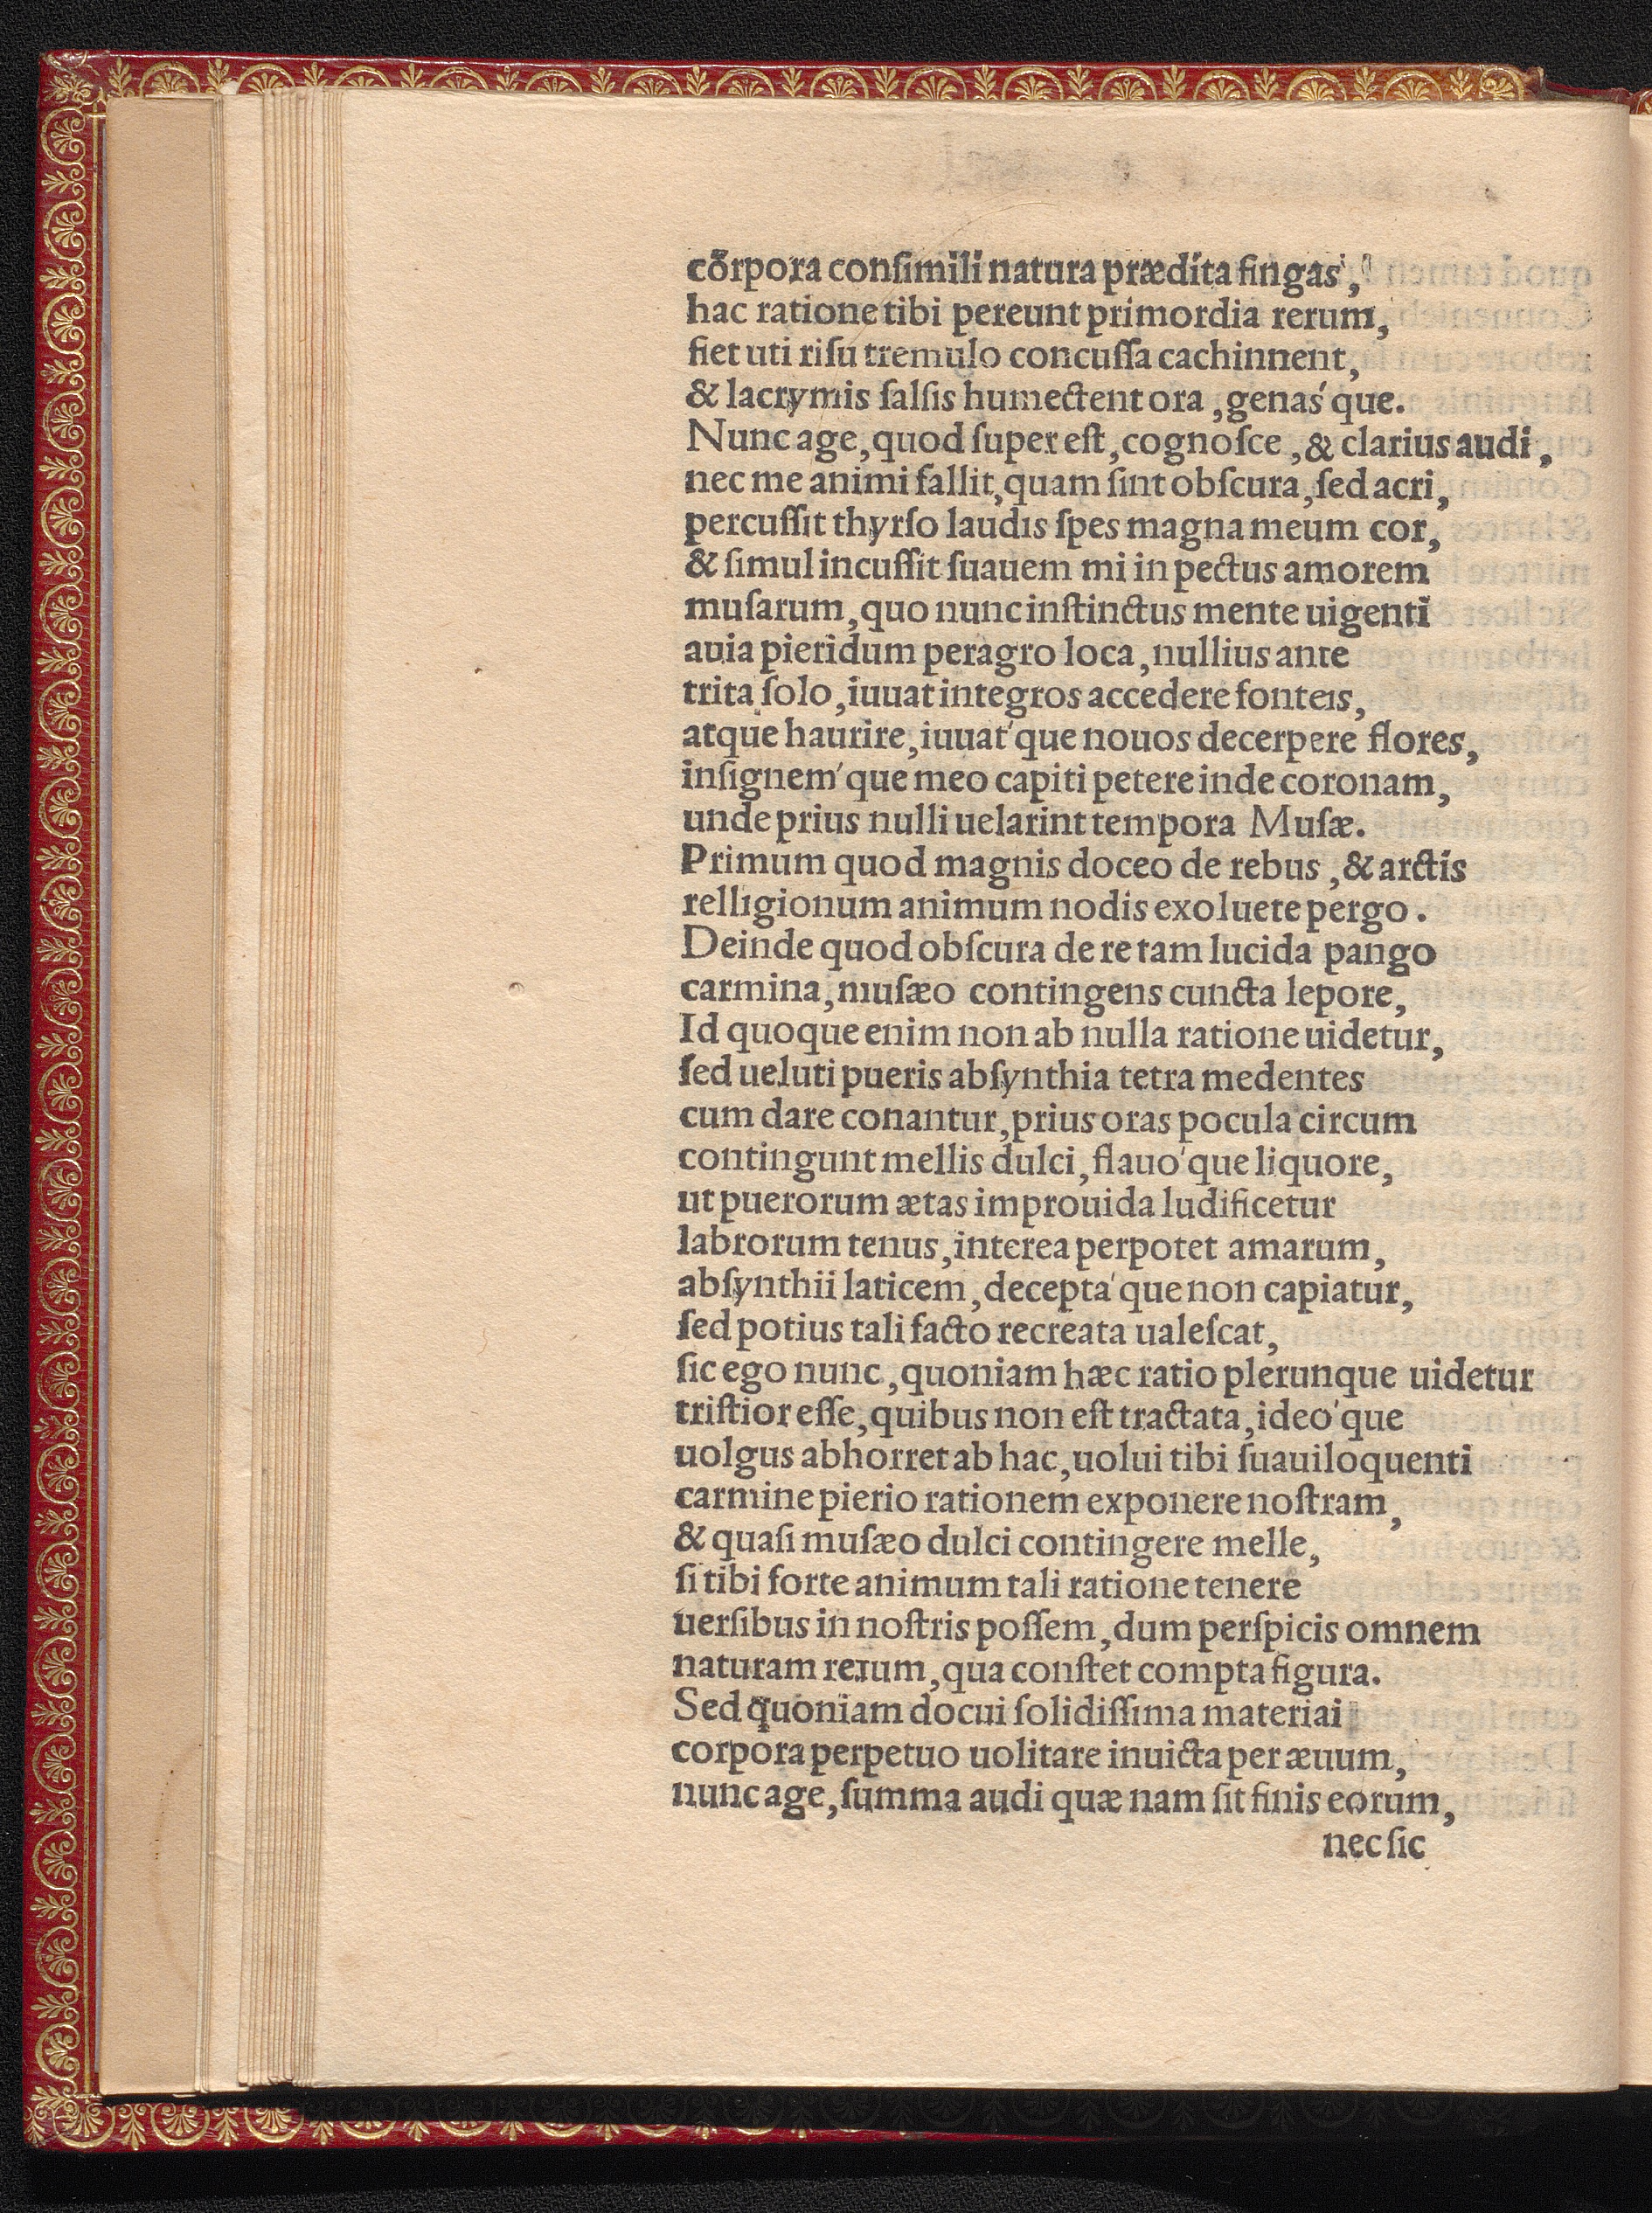 corpora conſimili natura prædita fingas,
hac ratione tibi pereunt primordia rerum,
fiet uti riſu tremulo concuſſa cachinnent,
& lacrymis ſalſis humectent ora, genas'que.
Nunc age, quod super eſt, cognoſce, & clarius audi,
nec me animi fallit, quam ſint obſcura, ſed acri,
percuſſit thyrſo laudis ſpes magna meum cor,
& ſimul incuſſit ſuauem mi in pectus amorem
muſarum, quo nunc inſtinctus mente uigenti
auia pieridum peragro loca, nullius ante
trita ſolo, iuuat integros accedere fonteis,
atque haurire, iuuat'que nouos decerpere flores,
inſignem'que meo capiti petere inde coronam,
unde prius nulli uelarint tempora Muſæ.
Primum quod magnis doceo de rebus, & arctis
relligionum animum nodis exoluete pergo.
Deinde quod obſcura de re tam lucida pango
carmina, muſæo contingens cuncta lepore,
Id quoque enim non ab nulla ratione uidetur,
ſed ueluti pueris abſynthia tetra medentes
cum dare conantur, prius oras pocula circum
contingunt mellis dulci, flauo'que liquore,
ut puerorum ætas improuida ludificetur
labrorum tenus, interea perpotet amarum,
abſynthii laticem, decepta'que non capiatur,
ſed potius tali facto recreata ualeſcat,
ſic ego nunc, quoniam hæc ratio plerunque uidetur
triſtior eſſe, quibus non eſt tractata, ideo'que
uolgus abhorret ab hac, uolui tibi ſuauiloquenti
carmine pierio rationem exponere noſtram,
& quaſi muſæo dulci contingere melle,
ſi tibi forte animum tali ratione tenere
uerſibus in noſtris poſſem, dum perſpicis omnem
naturam rerum, qua conſtet compta figura.
Sed quoniam docui ſolidiſſima materiai
corpora perpetuo uolitare inuicta per æuum,
nunc age, ſumma audi quæ nam ſit finis eorum,
nec ſic